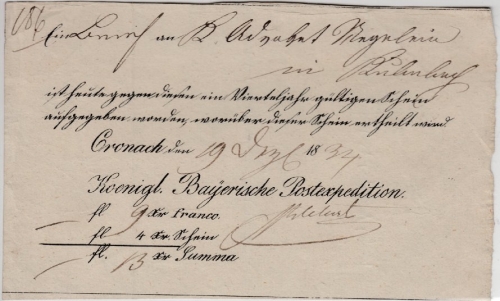 186
Ein Brief an K. Advokat Wegelein
in Kulmbach
ist heute gegen diesen ein Vierteljahr gültigen Schein
aufgegeben worden, worüber dieser Schein ertheilt wird.
Cronach den 19 Dezb 1834
Koenigl. Bayerische Postexpedition.
fl 9 Xr Franco.
fl 4 Xr. Schein
fl. 13 Xr Summa